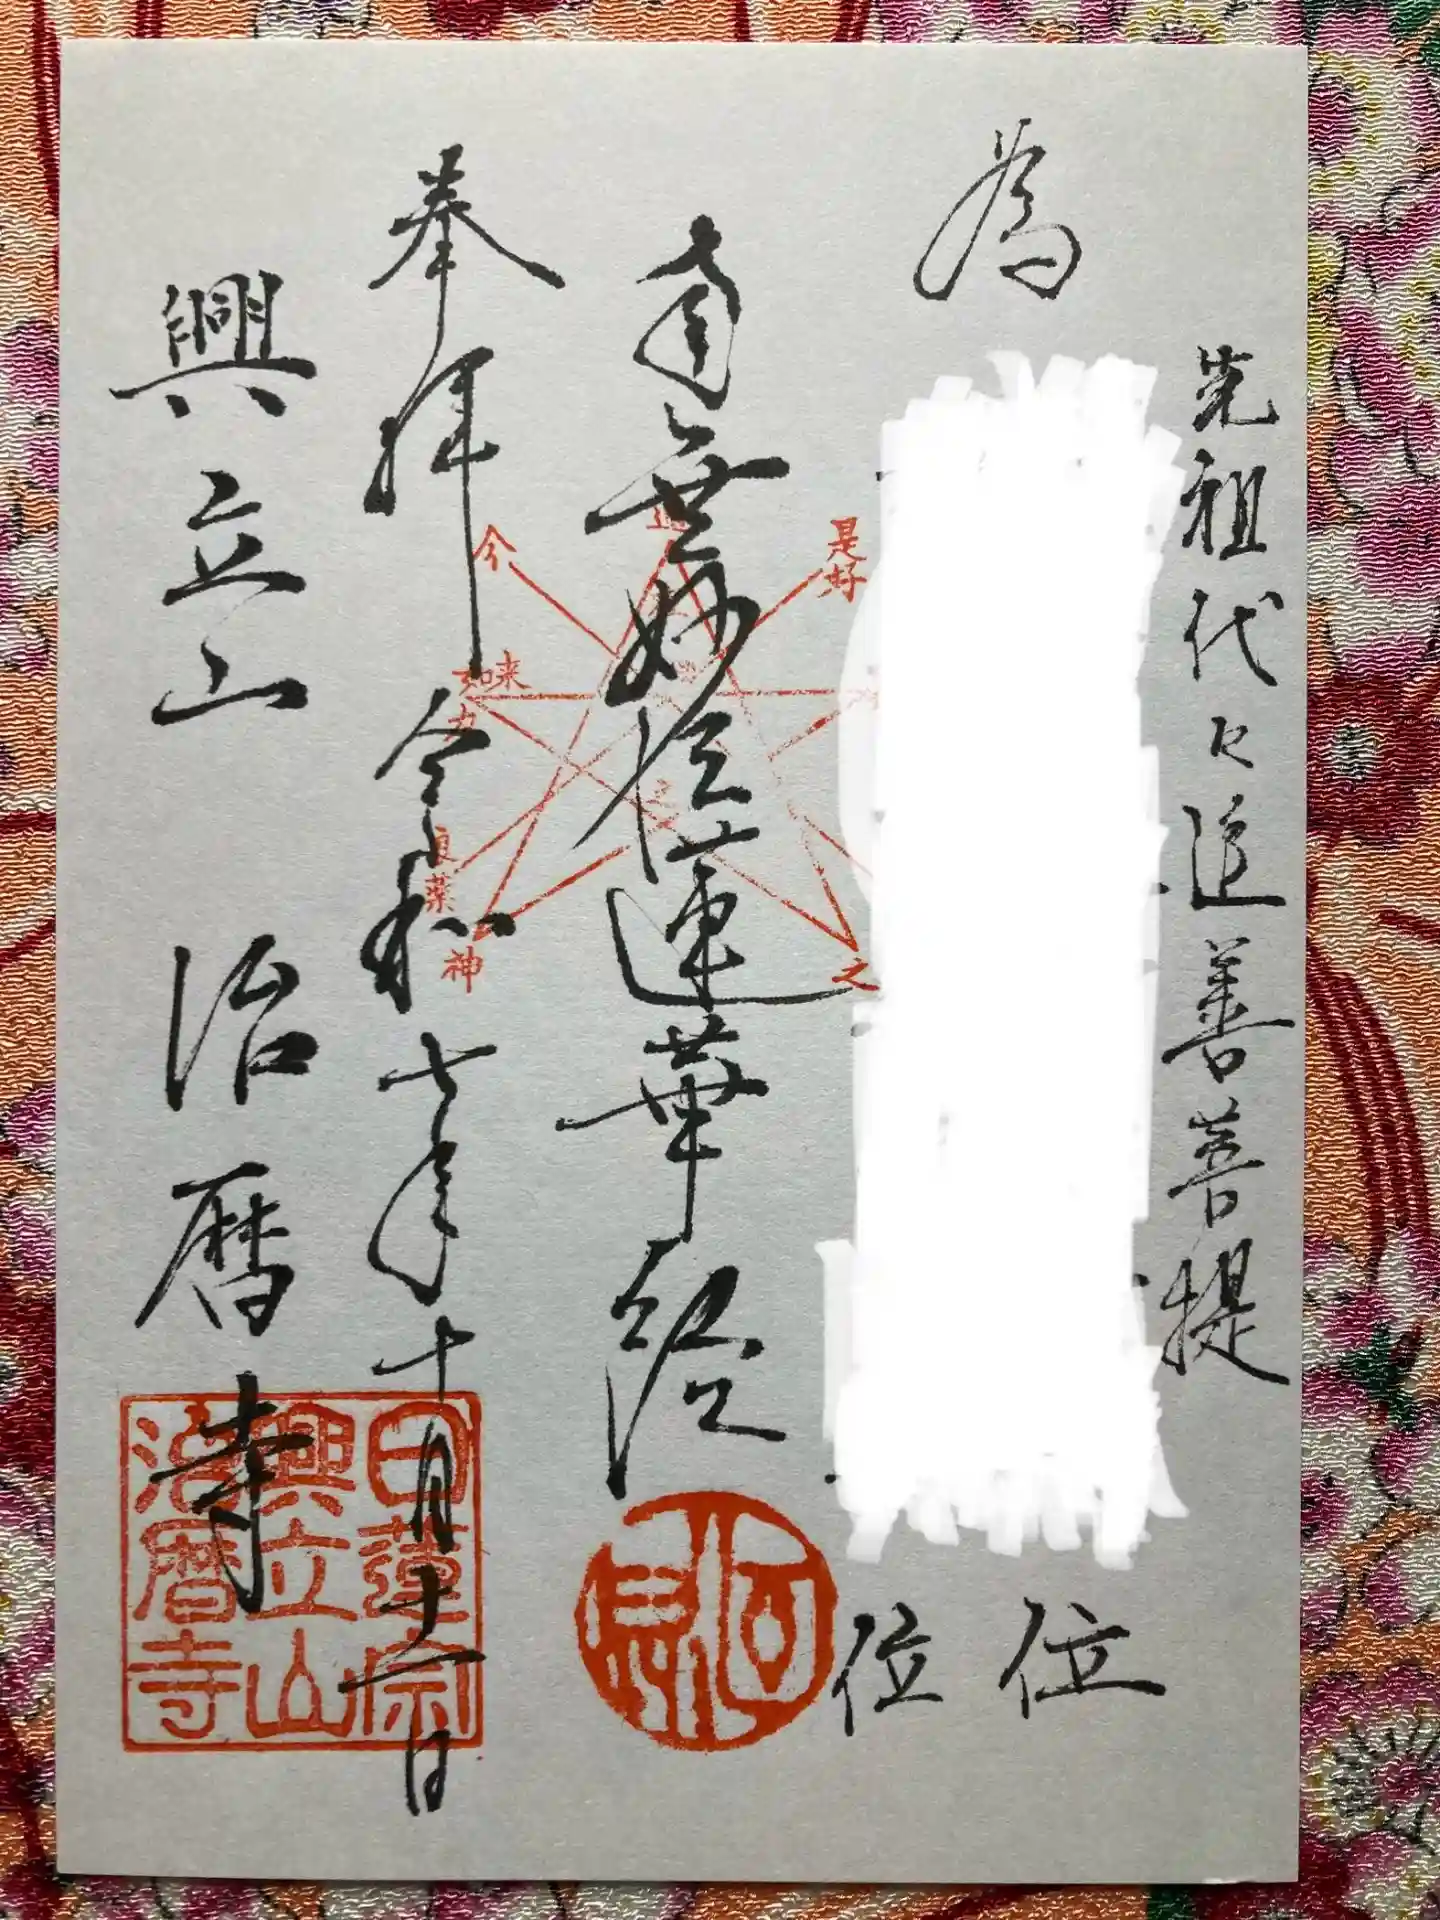 為
先祖代々追善菩提
位
位
南無妙法蓮華経
奉拝 令和七年十月十二日
興立山 治暦寺
是好
今
如来
神
之
日蓮宗
興立山
治暦寺